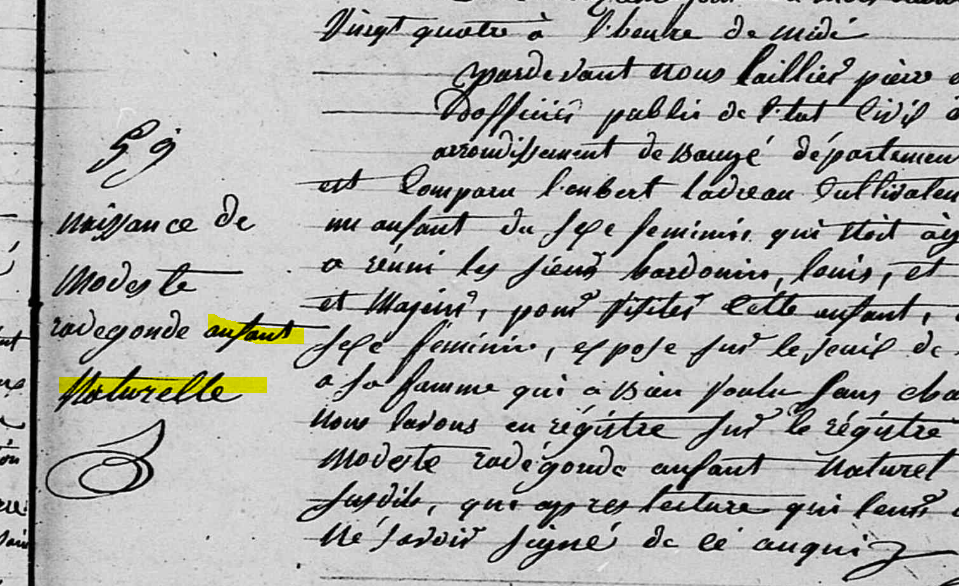 59
naissance de
modeste
radegonde anfant
Naturelle
Vingt quatre à l'heure de midi
pardevant nous Laillier pierre
D'officier public de l'état Civil
arrondissement de Sauzé département
est Comparu l'enbert ladreau Cultivateur
un anfant du sexe feminin qui étoit
a réuni les sieurs bardonin, louis, et
et Majeur, pour visiter Cette anfant,
sexe féminin, expose sur le seuil de
a sa famme qui a bien voulu sans
nous lavons en régistre sur le régistre
modeste radégonde anfant Naturel
susdit, qui apres lecture qui leurs
Né savoir signé de cé anqui